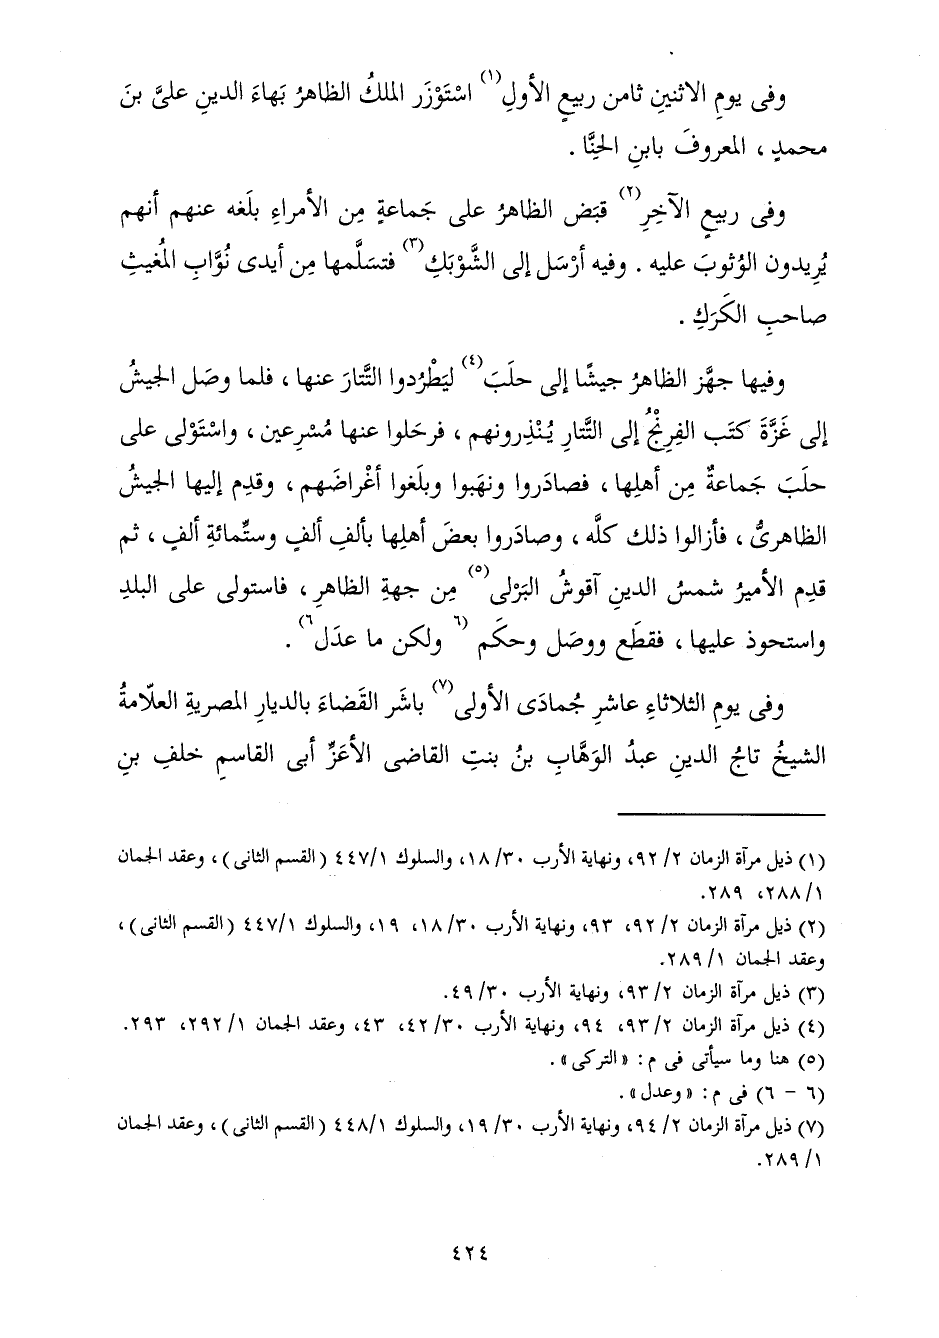 وفى يومِ الاثنينِ ثامن ربيعٍ الأولِ(١) اسْتَوْزَر الملكُ الظاهرُ بَهاءَ الدينِ علىَّ بنَ
محمدٍ ، المعروفَ بابنِ الحِنَّا .
وفى ربيعٍ الآخِرِ(٢) قبَض الظاهرُ على جَماعةٍ مِن الأمراءِ بلَغه عنهم أنهم
يُرِيدون الوُثوبَ عليه . وفيه أرْسَل إلى الشَّوْبَكِ(٣) فتسَلَّمها مِن أيدى نُوَّابِ المُغيثِ
صاحبِ الكَرَكِ .
وفيها جهَّز الظاهرُ جيشًا إلى حلَبَ(٤) ليَطْرُدوا التَّتارَ عنها ، فلما وصَل الجيشُ
إلى غَزَّةَ كتَب الفِرِنْجُ إلى التَّتارِ يُنْذِرونهم ، فرحَلوا عنها مُسْرِعين ، واسْتَوْلى على
حلَبَ جَماعةٌ مِن أهلِها ، فصادَروا ونهَبوا وبلَغوا أغْراضَهم ، وقدِم إليها الجيشُ
الظاهرىُّ ، فأزالوا ذلك كلَّه ، وصادَروا بعضَ أهلِها بألفِ ألفٍ وستِّمائةِ ألفٍ ، ثم
قدِم الأميرُ شمسُ الدينِ آقوشُ البَرْلى(٥) مِن جهةِ الظاهرِ ، فاستولى على البلدِ
واستحوذ عليها ، فقطَع ووصَل وحكَم (٦ ولكن ما عدَل٦) .
وفى يومِ الثلاثاءِ عاشرِ جُمادَى الأولى(٧) باشَر القَضاءَ بالديارِ المصريةِ العلّامةُ
الشيخُ تاجُ الدينِ عبدُ الوَهَّابِ بنُ بنتِ القاضى الأعَزِّ أبى القاسمِ خلفِ بنِ
(١) ذيل مرآة الزمان ٢/ ٩٢، ونهاية الأرب ٣٠/ ١٨، والسلوك ١/ ٤٤٧ (القسم الثانى) ، وعقد الجمان
١/ ٢٨٨، ٢٨٩.
(٢) ذيل مرآة الزمان ٢/ ٩٢، ٩٣، ونهاية الأرب ٣٠/ ١٨، ١٩، والسلوك ١/ ٤٤٧ (القسم الثانى) ،
وعقد الجمان ١/ ٢٨٩.
(٣) ذيل مرآة الزمان ٢/ ٩٣، ونهاية الأرب ٣٠/ ٤٩.
(٤) ذيل مرآة الزمان ٢/ ٩٣، ٩٤، ونهاية الأرب ٣٠/ ٤٢، ٤٣، وعقد الجمان ١/ ٢٩٢، ٢٩٣.
(٥) هنا وما سيأتى فى م : « التركى » .
(٦ - ٦) فى م : « وعدل » .
(٧) ذيل مرآة الزمان ٢/ ٩٤، ونهاية الأرب ٣٠/ ١٩، والسلوك ١/ ٤٤٨ (القسم الثانى) ، وعقد الجمان
١/ ٢٨٩.
٤٢٤